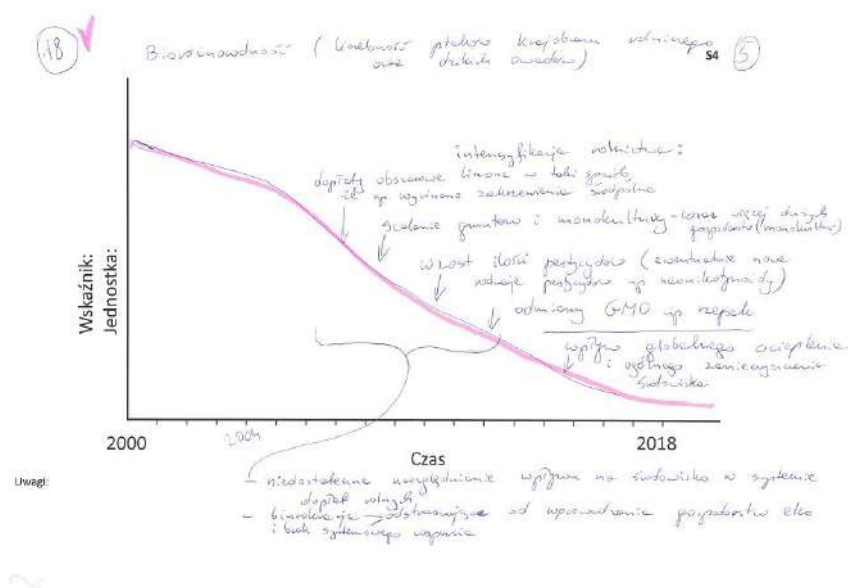 18
Bioróżnorodność (liczebność ptaków krajobrazu rolniczego
oraz dzikich owadów)
S4
5
intensyfikacja rolnictwa:
dopłaty obszarowe liczone w taki sposób,
że np. wycinano zakrzewienia śródpolne
scalanie gruntów i monokultury - coraz więcej dużych
gospodarstw (monokultur)
wzrost ilości pestycydów (ewentualnie nowe
rodzaje pestycydów np neonikotynoidy)
odmiany GMO np. rzepak
wpływ globalnego ocieplenia
i ogólnego zanieczyszczenia
środowiska
Wskaźnik:
Jednostka:
2000
2004
2018
Czas
Uwagi:
- niedostateczne uwzględnienie wpływu na środowisko w systemie
dopłat rolnych
- biurokracja odstraszająca od wprowadzania gospodarstw eko
i brak systemowego wsparcia